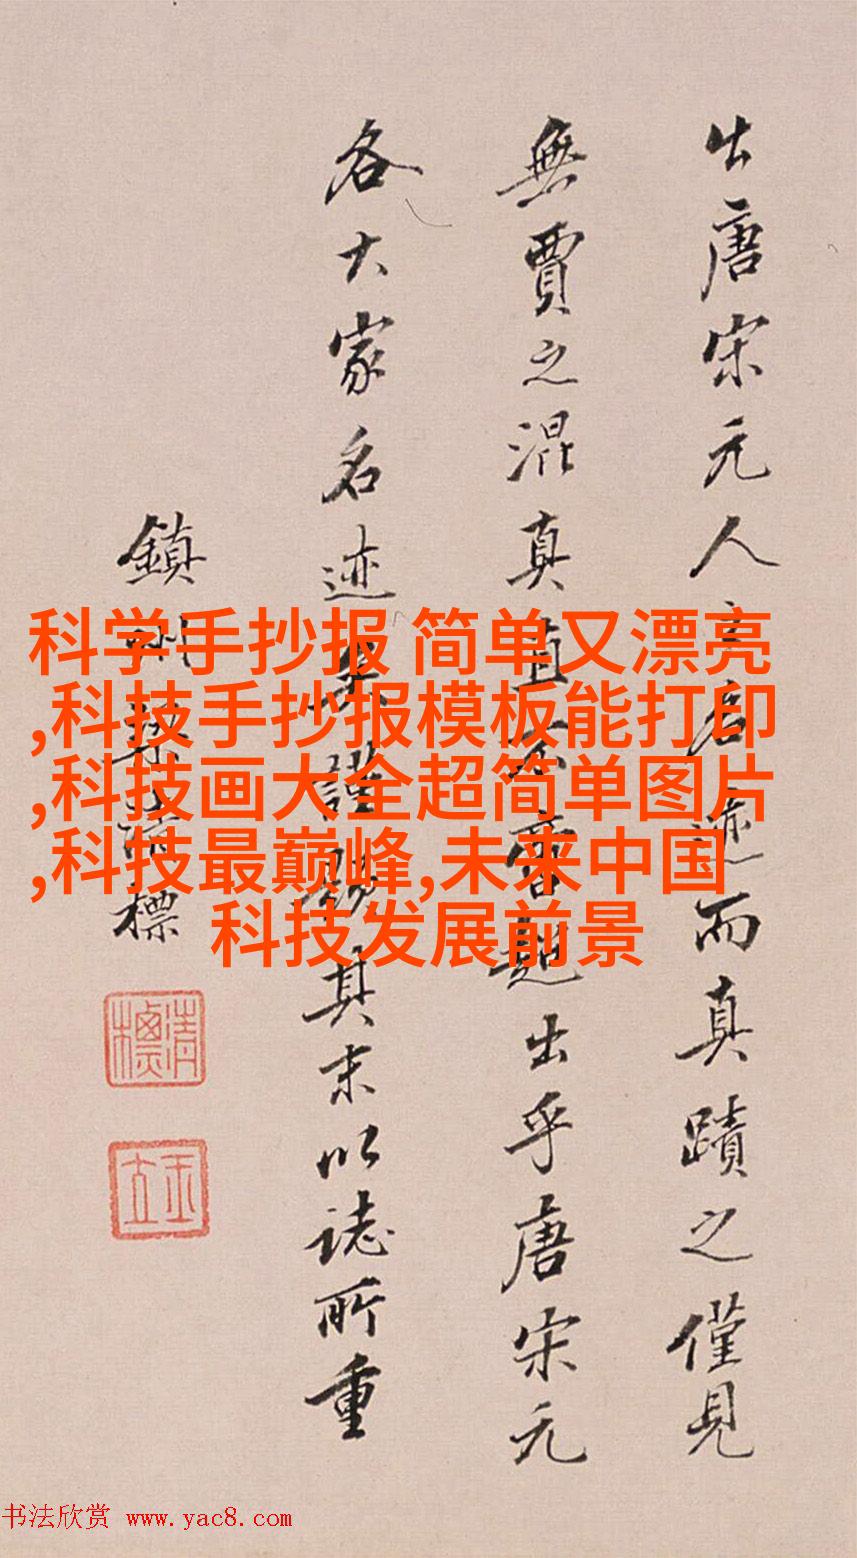 出唐宋元人名迹而真蹟之僅見
無賈之混真直不啻超出乎唐宋元
各大家名迹矣謹題其末以誌所重
鎮州梁清標
清標
玉立
科学手抄报 简单又漂亮
,科技手抄报模板能打印
,科技画大全超简单图片
,科技最巅峰,未来中国
科技发展前景
书法欣赏 www.yac8.com